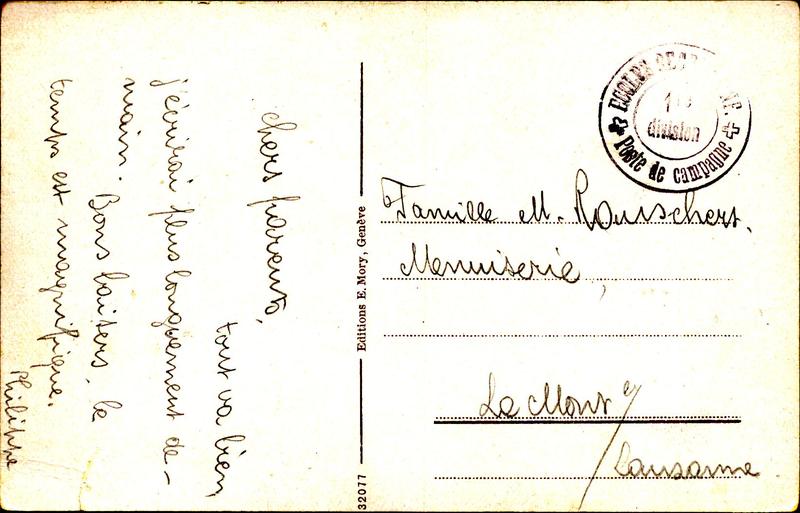 Chers parents,
tout va bien,
j'écrirai plus longuement de-
main. Bons baisers, le
temps est magnifique.
Philippe
Editions E. Mory, Genève
32077
ECOLES DE
1re
division
Poste de campagne
Famille M. Rouschert,
Menuiserie,
Le Mont s/
Lausanne